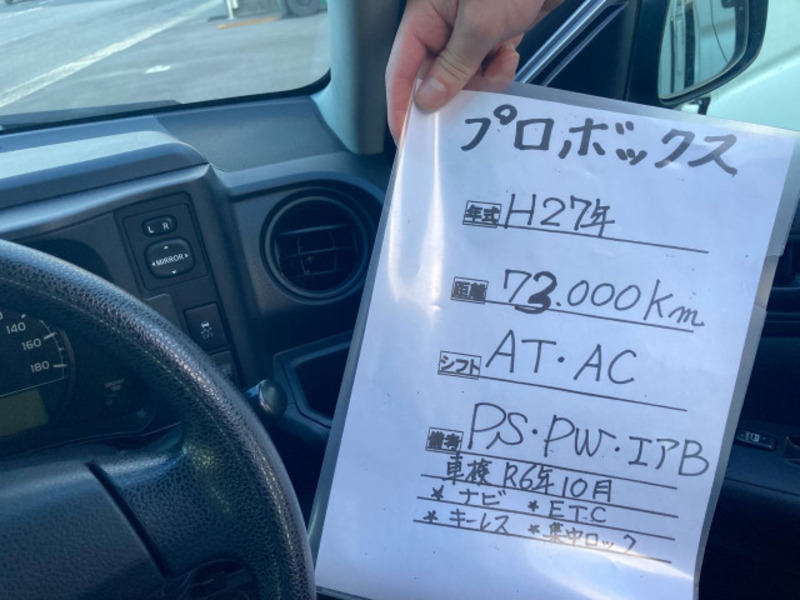 プロボックス
年式 H27年
距離 73.000km
シフト AT・AC
備考 PS・PW・エアB
車検 R6年10月
* ナビ * ETC
* キーレス * 集中ロック
L R
MIRROR
140
160
180